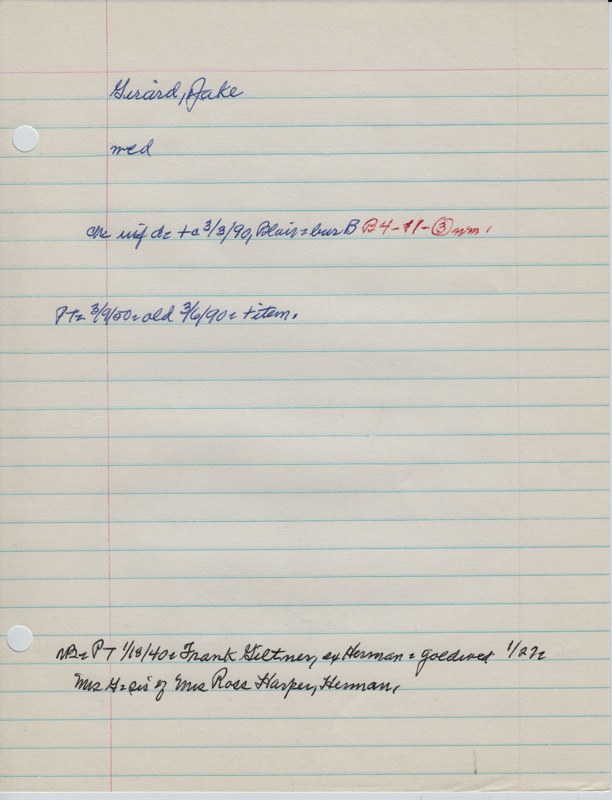 Girard, Jake
med
inf d = ta 3/3/90, Blair = bur B B4-11-3 nm.
PT = 3/9/50 = old 3/6/90 = titem.
NB = PT 1/18/40 = Frank Giltner, ex Herman = goldwed 1/27 =
Mrs G = sis of Mrs Ross Harper, Herman.